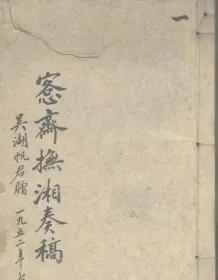 一
愙齋撫湘奏稿
吳湖帆君贈 一九五二年七